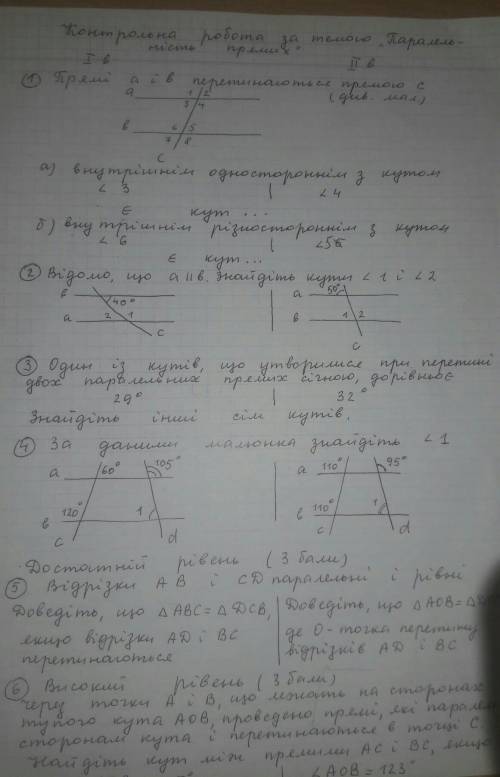 Контрольна робота за темою „Паралель-
ність прямих"
I в II в
① Прямі a і в перетинаються прямою c
(див. мал)
a 1 2
3 4
в 6 5
7 8
c
а) внутрішнім одностороннім з кутом
∠ 3 | ∠ 4
є кут ...
б) внутрішнім різностороннім з кутом
∠ 6 | ∠5
є кут ...
② Відомо, що a॥в. Знайдіть кути ∠ 1 і ∠ 2
в 40° a 50°
a 2 1 в 1 2
c c
③ Один із кутів, що утворилися при перетині
двох паралельних прямих січною, дорівнює
29° | 32°
Знайдіть інші сім кутів.
④ За даними малюнка знайдіть ∠ 1
a 60° 105° a 110° 95°
в 120° 1 в 110° 1
c d c d
Достатній рівень (3 бали)
⑤ Відрізки AB і CD паралельні і рівні
Доведіть, що △ABC = △DCB, | Доведіть, що △AOB = △
якщо відрізки AD і BC | де O - точка перетину
перетинаються | відрізків AD і BC
⑥ Високий рівень (3 бали)
Через точки A і B, що лежать на сторонах
тупого кута AOB, проведено прямі, які парале
сторонам кута і перетинаються в точці C.
Знайдіть кут між прямими AC і BC, якщо
∠AOB = 123°